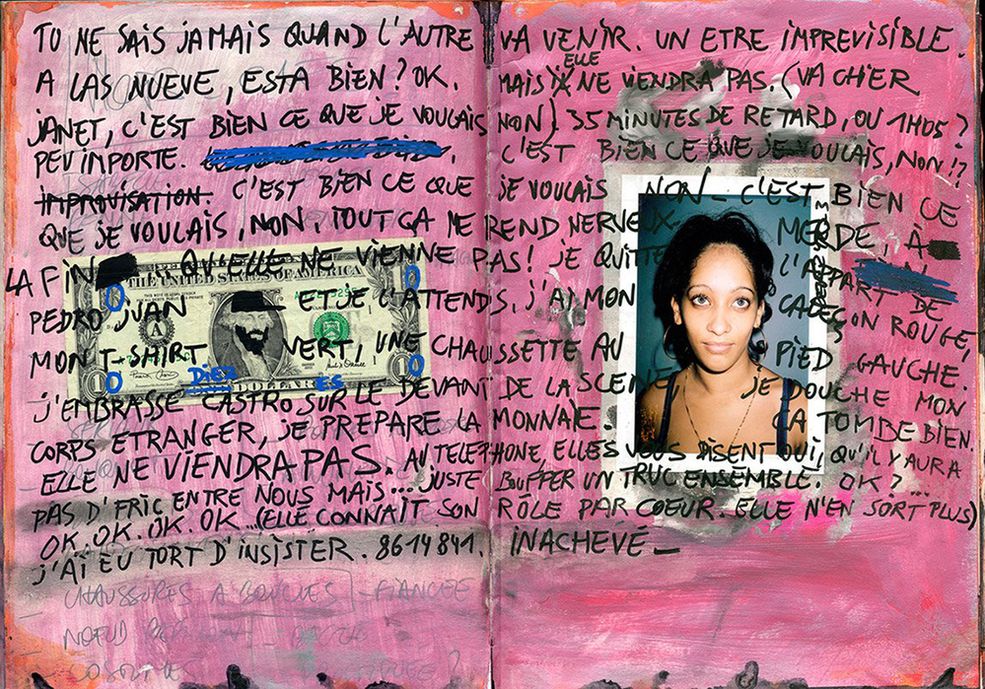 TU NE SAIS JAMAIS QUAND L'AUTRE VA VENIR. UN ETRE IMPREVISIBLE.
A LAS NUEVE, ESTA BIEN? OK. MAIS ELLE NE VIENDRA PAS. (VA CHIER
JANET, C'EST BIEN CE QUE JE VOULAIS NON) 35 MINUTES DE RETARD, OU 1H05?
PEU IMPORTE. C'EST BIEN CE QUE JE VOULAIS, NON!?
IMPROVISATION. C'EST BIEN CE QUE JE VOULAIS NON - C'EST BIEN CE
QUE JE VOULAIS, NON, TOUT ÇA ME REND NERVEUX. MERDE, À
LA FIN QU'ELLE NE VIENNE PAS! JE QUITTE L'APPART DE
PEDRO JUAN ET JE L'ATTENDS, J'AI MON CALEÇON ROUGE,
MON T-SHIRT VERT, UNE CHAUSSETTE AU PIED GAUCHE.
J'EMBRASSE CASTRO SUR LE DEVANT DE LA SCENE, JE DOUCHE MON
CORPS ETRANGER, JE PREPARE LA MONNAIE. ÇA TOMBE BIEN.
ELLE NE VIENDRA PAS. AU TELEPHONE, ELLES VOUS DISENT OUI, QU'IL Y AURA
PAS D'FRIC ENTRE NOUS MAIS... JUSTE BOUFFER UN TRUC ENSEMBLE. OK?...
OK. OK. OK. OK. (ELLE CONNAIT SON RÔLE PAR COEUR. ELLE N'EN SORT PLUS)
J'AI EU TORT D'INSISTER. 8614841. INACHEVÉ_
CHAUSSURES A BOUCLES - FIANCEE
NOEUD
THE UNITED STATES OF AMERICA
A
DIEZ
DOLLAR ES